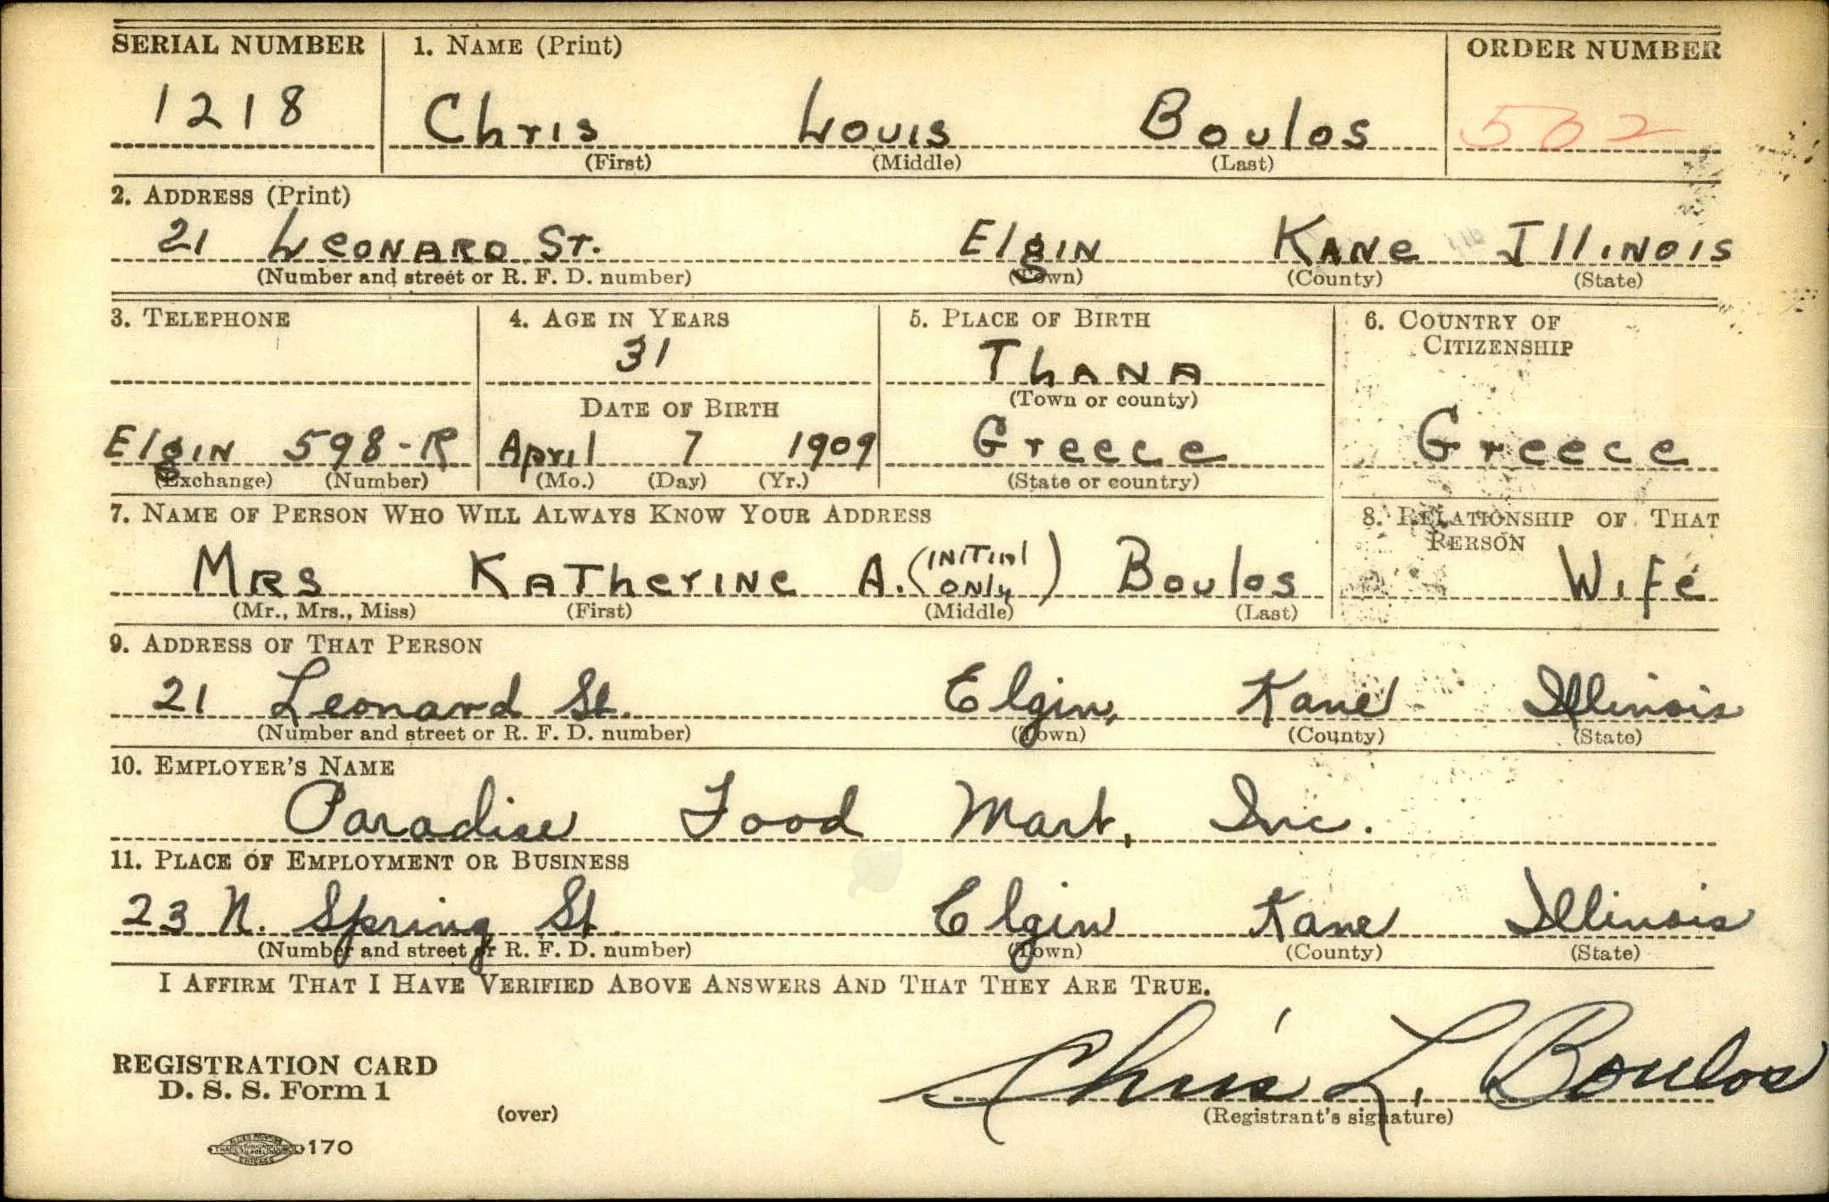 SERIAL NUMBER 1. NAME (Print) ORDER NUMBER
1218 Chris Louis Boulos 502
(First) (Middle) (Last)
2. ADDRESS (Print)
21 LEONARD ST. ElgIN KANe IllINOIS
(Number and street or R. F. D. number) (Town) (County) (State)
3. TELEPHONE 4. AGE IN YEARS 5. PLACE OF BIRTH 6. COUNTRY OF CITIZENSHIP
31 ThANA
(Town or county)
DATE OF BIRTH
ElgIN 598-R April 7 1909 Greece Greece
(Exchange) (Number) (Mo.) (Day) (Yr.) (State or country)
7. NAME OF PERSON WHO WILL ALWAYS KNOW YOUR ADDRESS 8. RELATIONSHIP OF THAT PERSON
MRS KATherINe A. (INITIAL ONLY) Boulos Wife
(Mr., Mrs., Miss) (First) (Middle) (Last)
9. ADDRESS OF THAT PERSON
21 Leonard St. Elgin, Kane Illinois
(Number and street or R. F. D. number) (Town) (County) (State)
10. EMPLOYER'S NAME
Paradise Food Mart, Inc.
11. PLACE OF EMPLOYMENT OR BUSINESS
23 N. Spring St. Elgin Kane Illinois
(Number and street or R. F. D. number) (Town) (County) (State)
I AFFIRM THAT I HAVE VERIFIED ABOVE ANSWERS AND THAT THEY ARE TRUE.
REGISTRATION CARD
D. S. S. Form 1
Chris L. Boulos
(over) (Registrant's signature)
170